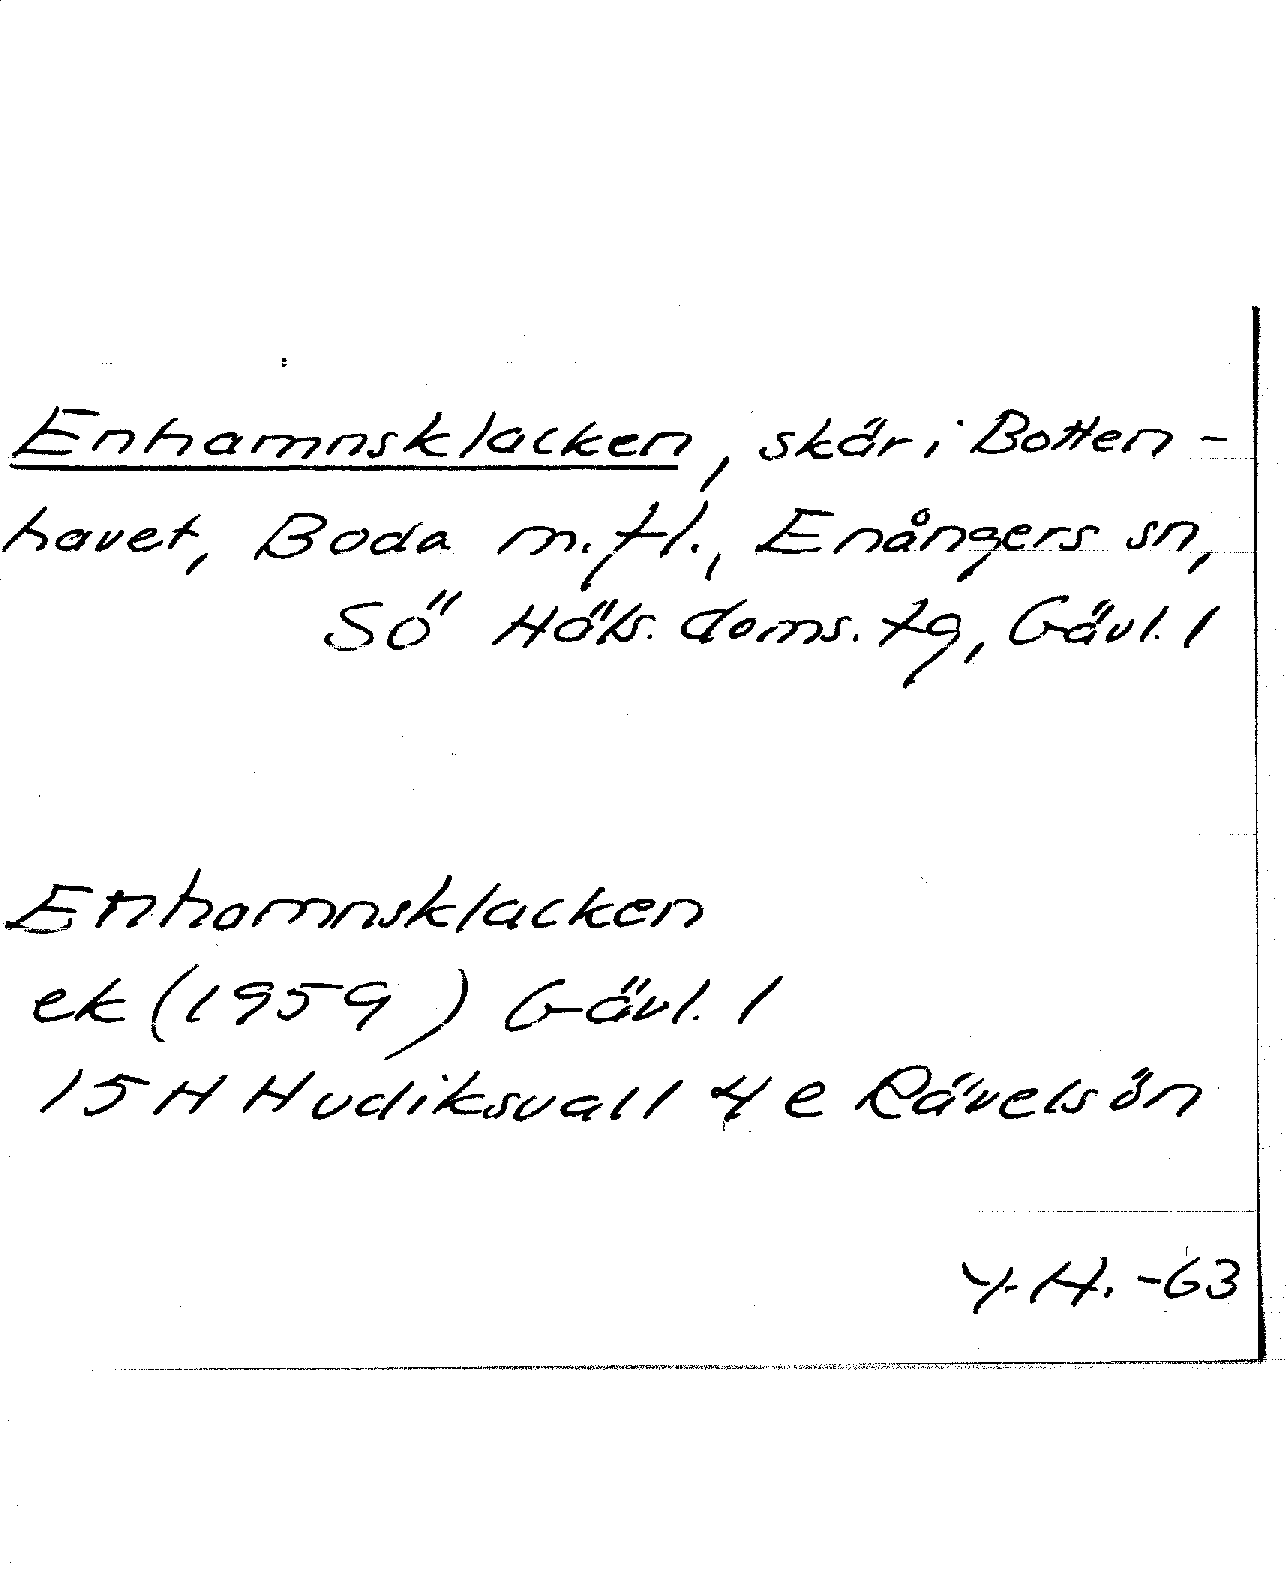 Enhamnsklacken, skär i Botten-
havet, Boda m.fl., Enångers sn,
Sö Häls. doms. tg, Gävl. l
Enhamnsklacken
ek (1959) Gävl. l
15 H Hudiksvall 4 e Rävelsön
Y.H. -63